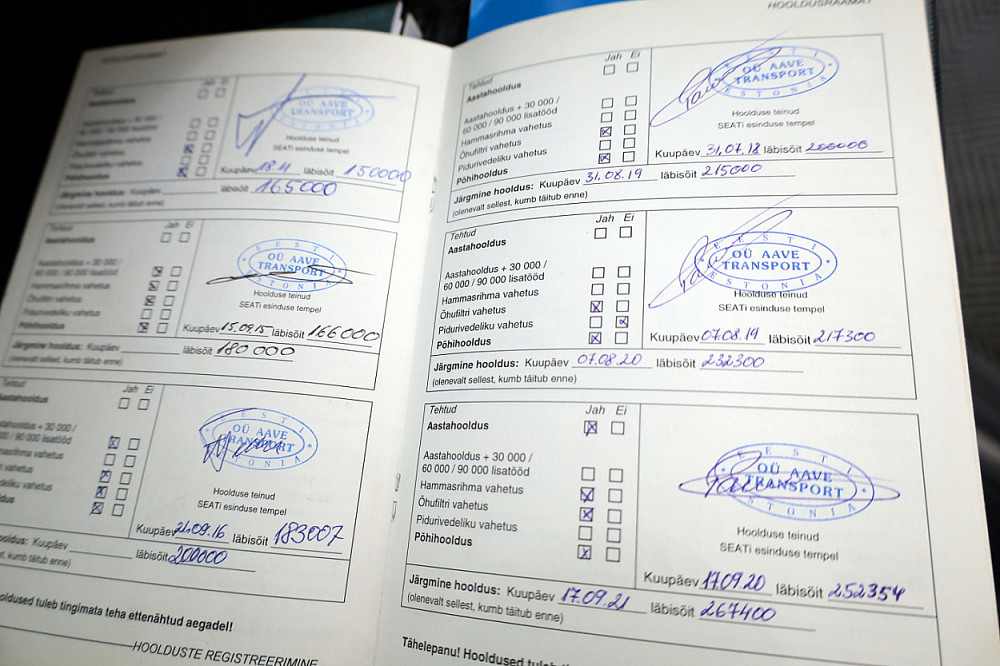 Tehtud Jah Ei
Aastahooldus
Aastahooldus + 30 000 /
60 000 / 90 000 lisatööd
Hammasrihma vahetus
Õhufiltri vahetus
Pidurivedeliku vahetus
Põhihooldus
EESTI
OÜ AAVE
TRANSPORT
ESTONIA
Hoolduse teinud
SEATi esinduse tempel
Kuupäev 18.11 läbisõit 150000
Järgmine hooldus: Kuupäev läbisõit 165000
(olenevalt sellest, kumb täitub enne)
Tehtud Jah Ei
Aastahooldus
Aastahooldus + 30 000 /
60 000 / 90 000 lisatööd
Hammasrihma vahetus
Õhufiltri vahetus
Pidurivedeliku vahetus
Põhihooldus
EESTI
OÜ AAVE
TRANSPORT
ESTONIA
Hoolduse teinud
SEATi esinduse tempel
Kuupäev 15.09.15 läbisõit 166000
Järgmine hooldus: Kuupäev läbisõit 180 000
(olenevalt sellest, kumb täitub enne)
Tehtud Jah Ei
Aastahooldus
EESTI
OÜ AAVE
TRANSPORT
ESTONIA
Hoolduse teinud
SEATi esinduse tempel
Kuupäev 21.09.16 läbisõit 183007
Kuupäev läbisõit 200000
sellest, kumb täitub enne)
tuleb tingimata teha ettenähtud aegadel!
HOOLDUSTE REGISTREERIMINE
HOOLDUSRAAMAT
Tehtud Jah Ei
Aastahooldus
Aastahooldus + 30 000 /
60 000 / 90 000 lisatööd
Hammasrihma vahetus
Õhufiltri vahetus
Pidurivedeliku vahetus
Põhihooldus
EESTI
OÜ AAVE
TRANSPORT
ESTONIA
Hoolduse teinud
SEATi esinduse tempel
Kuupäev 31.07.18 läbisõit 200000
Järgmine hooldus: Kuupäev 31.08.19 läbisõit 215000
(olenevalt sellest, kumb täitub enne)
Tehtud Jah Ei
Aastahooldus
Aastahooldus + 30 000 /
60 000 / 90 000 lisatööd
Hammasrihma vahetus
Õhufiltri vahetus
Pidurivedeliku vahetus
Põhihooldus
EESTI
OÜ AAVE
TRANSPORT
ESTONIA
Hoolduse teinud
SEATi esinduse tempel
Kuupäev 07.08.19 läbisõit 217300
Järgmine hooldus: Kuupäev 07.08.20 läbisõit 232300
(olenevalt sellest, kumb täitub enne)
Tehtud Jah Ei
Aastahooldus
Aastahooldus + 30 000 /
60 000 / 90 000 lisatööd
Hammasrihma vahetus
Õhufiltri vahetus
Pidurivedeliku vahetus
Põhihooldus
EESTI
OÜ AAVE
TRANSPORT
ESTONIA
Hoolduse teinud
SEATi esinduse tempel
Kuupäev 17.09.20 läbisõit 252354
Järgmine hooldus: Kuupäev 17.09.21 läbisõit 267400
(olenevalt sellest, kumb täitub enne)
Tähelepanu! Hooldused tuleb